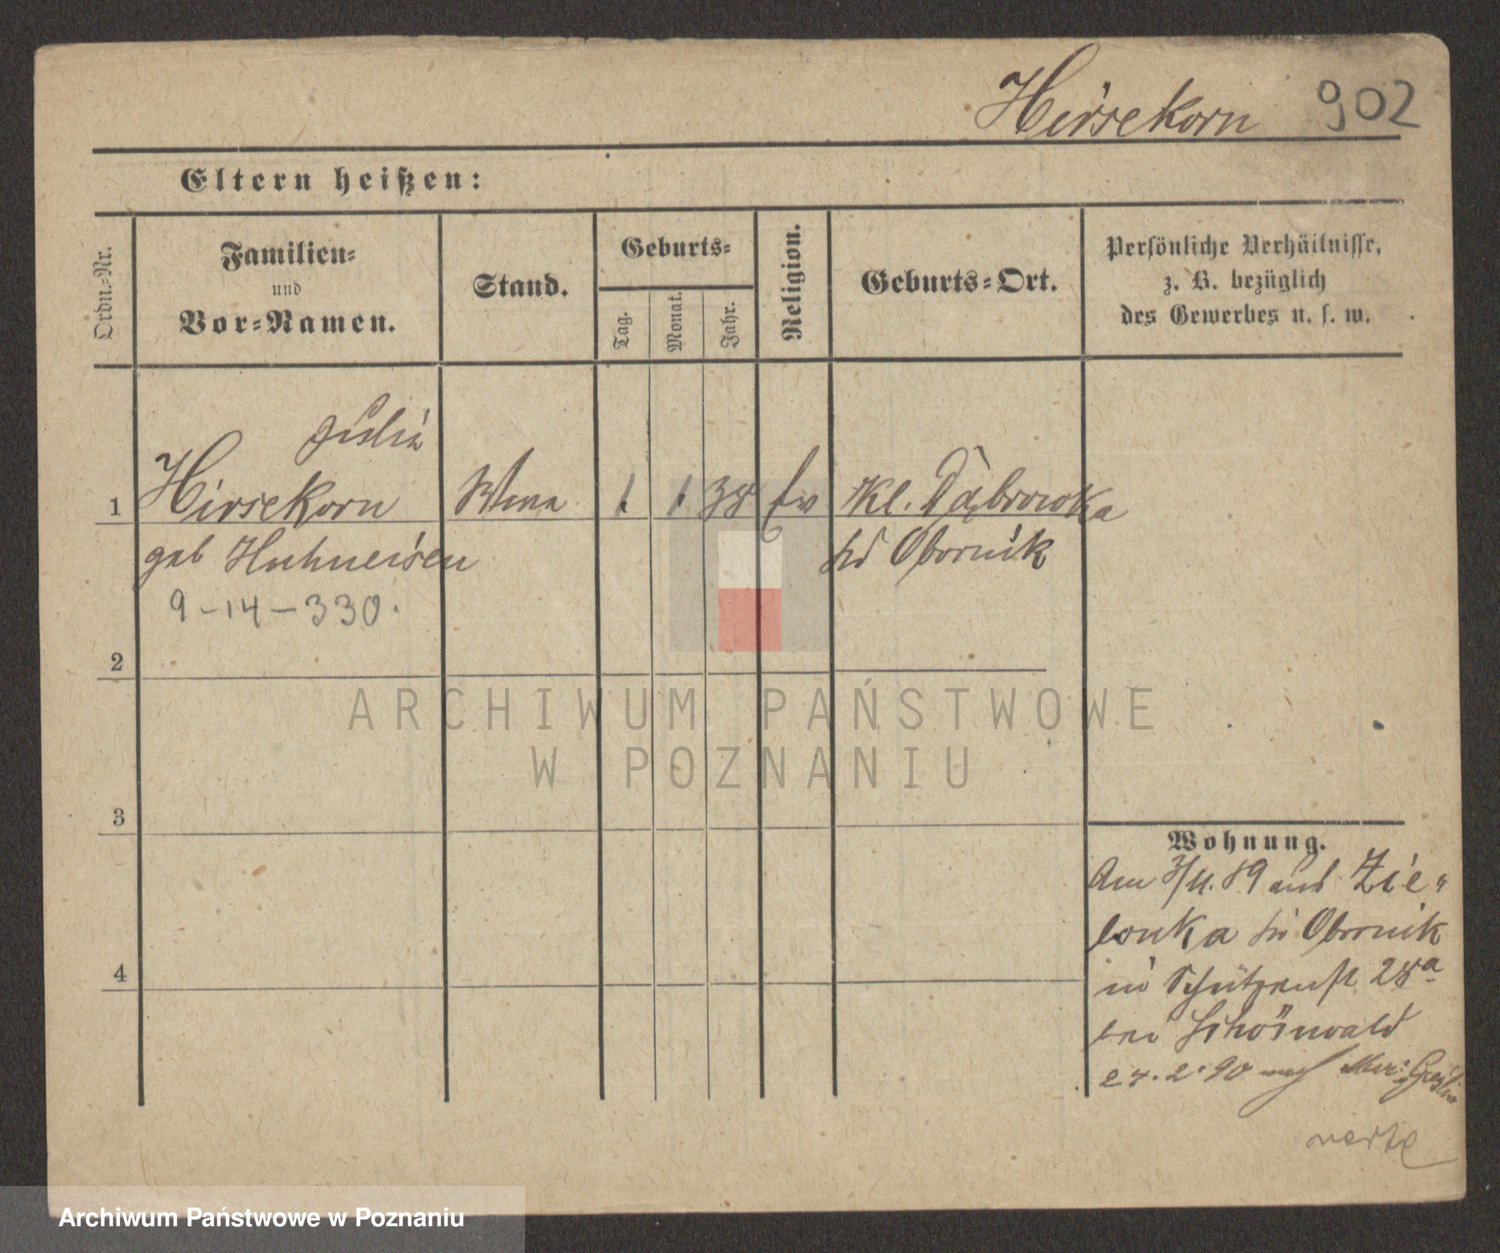 Hirsekorn 902
Eltern heißen:
Ordn.-Nr.
Familien-
und
Vor-Namen.
Stand.
Geburts-
Tag.
Monat.
Jahr.
Religion.
Geburts-Ort.
Persönliche Verhältnisse,
z. B. bezüglich
des Gewerbes u. s. w.
Julia
1 Hirsekorn Wwe 1 1 38 Ev Kl. Dąbrowka
geb Huhneisen bei Obornik
9-14-330.
2
3
4
ARCHIWUM PAŃSTWOWE
W POZNANIU
Wohnung.
Am 3/4. 89 aus Zie-
lonka bei Obornik
in Schützenst 28a
bei Schönwald
27.2.90 nach
verte
Archiwum Państwowe w Poznaniu